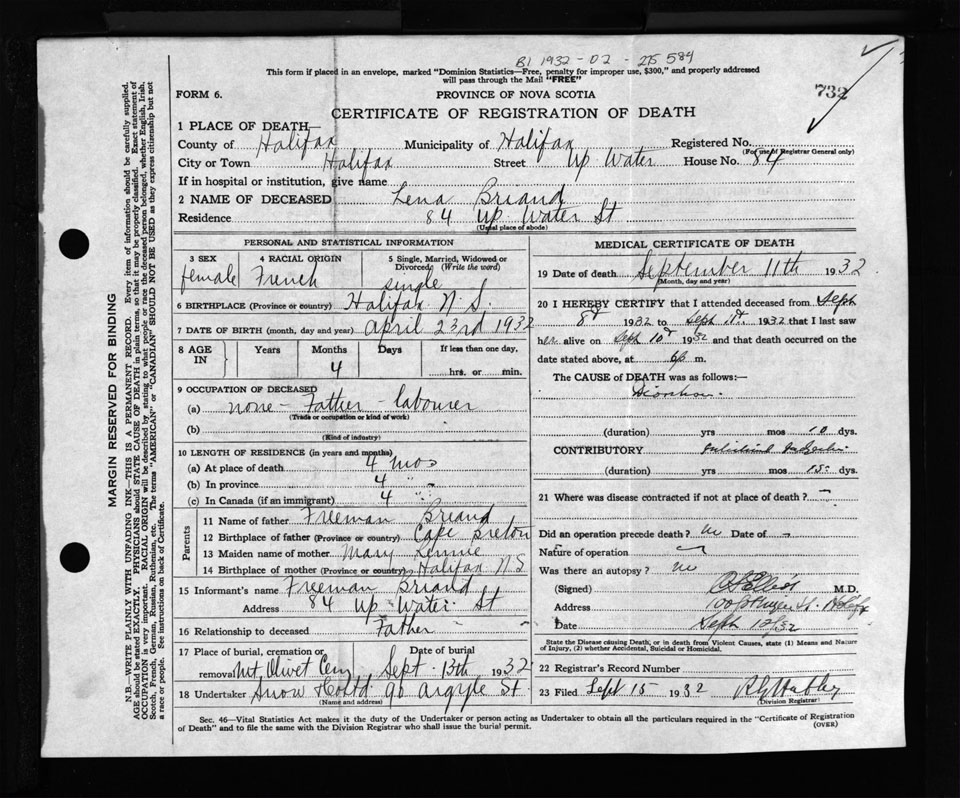 B1 1932-02-275584
This form if placed in an envelope, marked "Dominion Statistics—Free, penalty for improper use, $300," and properly addressed
will pass through the Mail "FREE"
732
FORM 6.
PROVINCE OF NOVA SCOTIA
CERTIFICATE OF REGISTRATION OF DEATH
1 PLACE OF DEATH—
County of Halifax Municipality of Halifax Registered No.
(For use of Registrar General only)
City or Town Halifax Street Up Water House No. 84
If in hospital or institution, give name
2 NAME OF DECEASED Lena Briand
Residence 84 Up Water St
(Usual place of abode)
PERSONAL AND STATISTICAL INFORMATION
3 SEX 4 RACIAL ORIGIN 5 Single, Married, Widowed or Divorced (Write the word)
female French single
6 BIRTHPLACE (Province or country) Halifax N.S.
7 DATE OF BIRTH (month, day and year) April 23rd 1932
8 AGE IN Years Months Days If less than one day,
4 hrs. or min.
9 OCCUPATION OF DECEASED
(a) none - Father - labourer
(Trade or occupation or kind of work)
(b)
(Kind of industry)
10 LENGTH OF RESIDENCE (in years and months)
(a) At place of death 4 mos
(b) In province 4 "
(c) In Canada (if an immigrant) 4 "
Parents
11 Name of father Freeman Briand
12 Birthplace of father (Province or country) Cape Breton
13 Maiden name of mother Mary Rennie
14 Birthplace of mother (Province or country) Halifax N.S
15 Informant's name Freeman Briand
Address 84 Up Water St
16 Relationship to deceased Father
17 Place of burial, cremation or removal Date of burial
Mt Olivet Cem Sept 13th 1932
18 Undertaker Snow Co Ltd 90 Argyle St
(Name and address)
MEDICAL CERTIFICATE OF DEATH
19 Date of death September 11th 1932
(Month, day and year)
20 I HEREBY CERTIFY that I attended deceased from Sept
8th 1932 to Sept 1932 that I last saw
her alive on Sept 10th 1932 and that death occurred on the
date stated above, at 6 p m.
The CAUSE of DEATH was as follows:—
(duration) yrs mos 10 dys.
CONTRIBUTORY
(duration) yrs mos 15 dys.
21 Where was disease contracted if not at place of death? -
Did an operation precede death? no Date of -
Nature of operation
Was there an autopsy? no
(Signed) M.D.
Address
Date Sept 12/32
State the Disease causing Death, or in death from Violent Causes, state (1) Means and Nature
of Injury, (2) whether Accidental, Suicidal or Homicidal.
22 Registrar's Record Number
23 Filed Sept 15 1932
(Division Registrar)
Sec. 46—Vital Statistics Act makes it the duty of the Undertaker or person acting as Undertaker to obtain all the particulars required in the "Certificate of Registration
of Death" and to file the same with the Division Registrar who shall issue the burial permit. (OVER)
MARGIN RESERVED FOR BINDING
N.B.—WRITE PLAINLY WITH UNFADING INK—THIS IS A PERMANENT RECORD. Every item of information should be carefully supplied.
AGE should be stated EXACTLY. PHYSICIANS should STATE CAUSE OF DEATH in plain terms, so that it may be properly classified. Exact statement of
OCCUPATION is very important. RACIAL ORIGIN will be described by stating to what people or race the deceased person belonged, whether English, Irish,
Scotch, French, German, Russian, Ruthenian, etc. The terms "AMERICAN" or "CANADIAN" SHOULD NOT BE USED as they express citizenship but not
a race or people. See instructions on back of Certificate.